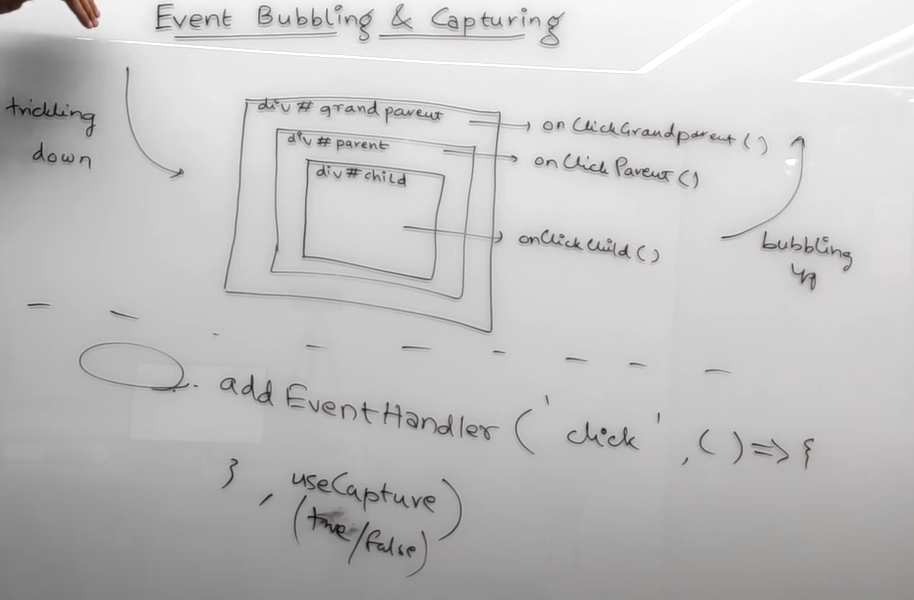 Event Bubbling & Capturing
trickling
down
div # grandparent
div # parent
div # child
onClickGrandparent ( )
onClick Parent ( )
onClickChild ( )
bubbling
up
. add EventHandler ( 'click' , ( ) => {
} , useCapture )
(true/false)